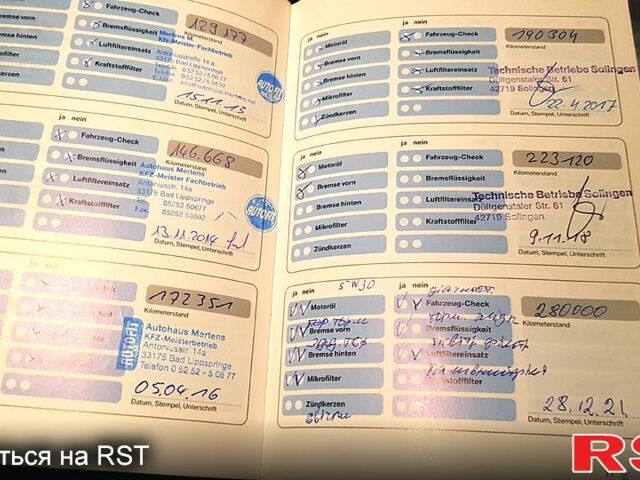 ja nein
Fahrzeug-Check
129177
Kilometerstand
Bremsflüssigkeit
Mertens M.
Kfz-Meister-Fachbetrieb
Antoniusstraße 14 a
33175 Bad Lippspringe
Luftfiltereinsatz
Kraftstofffilter
AUTOFIT
15.11.13
Datum, Stempel, Unterschrift
ja nein
Fahrzeug-Check
146.668
Kilometerstand
Bremsflüssigkeit
Autohaus Mertens
KFZ-Meister Fachbetrieb
Antoniusstr. 14a
33175 Bad Lippspringe
Tel. 05252 50677
Fax. 05252 53092
Luftfiltereinsatz
Kraftstofffilter
AUTOFIT
13.11.2014
Datum, Stempel, Unterschrift
172351
Kilometerstand
AUTOFIT
Autohaus Mertens
KFZ-Meisterbetrieb
Antoniusstr. 14a
33175 Bad Lippspringe
Telefon 0 52 52 - 5 06 77
05.04.16
Datum, Stempel, Unterschrift
ja nein
ja nein
Motoröl
Fahrzeug-Check
190304
Kilometerstand
Bremse vorn
Bremsflüssigkeit
Bremse hinten
Luftfiltereinsatz
Technische Betriebe Solingen
Dültgenstaler Str. 61
42719 Solingen
Mikrofilter
Kraftstofffilter
22.4.2017
Zündkerzen
Datum, Stempel, Unterschrift
ja nein
ja nein
Motoröl
Fahrzeug-Check
223120
Kilometerstand
Bremse vorn
Bremsflüssigkeit
Bremse hinten
Luftfiltereinsatz
Technische Betriebe Solingen
Dültgenstaler Str. 61
42719 Solingen
Mikrofilter
Kraftstofffilter
9.11.18
Zündkerzen
Datum, Stempel, Unterschrift
ja nein
5-W30
ja nein
Motoröl
Fahrzeug-Check
280000
Kilometerstand
Bremse vorn
Bremsflüssigkeit
Bremse hinten
Luftfiltereinsatz
Mikrofilter
Kraftstofffilter
28.12.21
Zündkerzen
Datum, Stempel, Unterschrift
ться на RST
RS